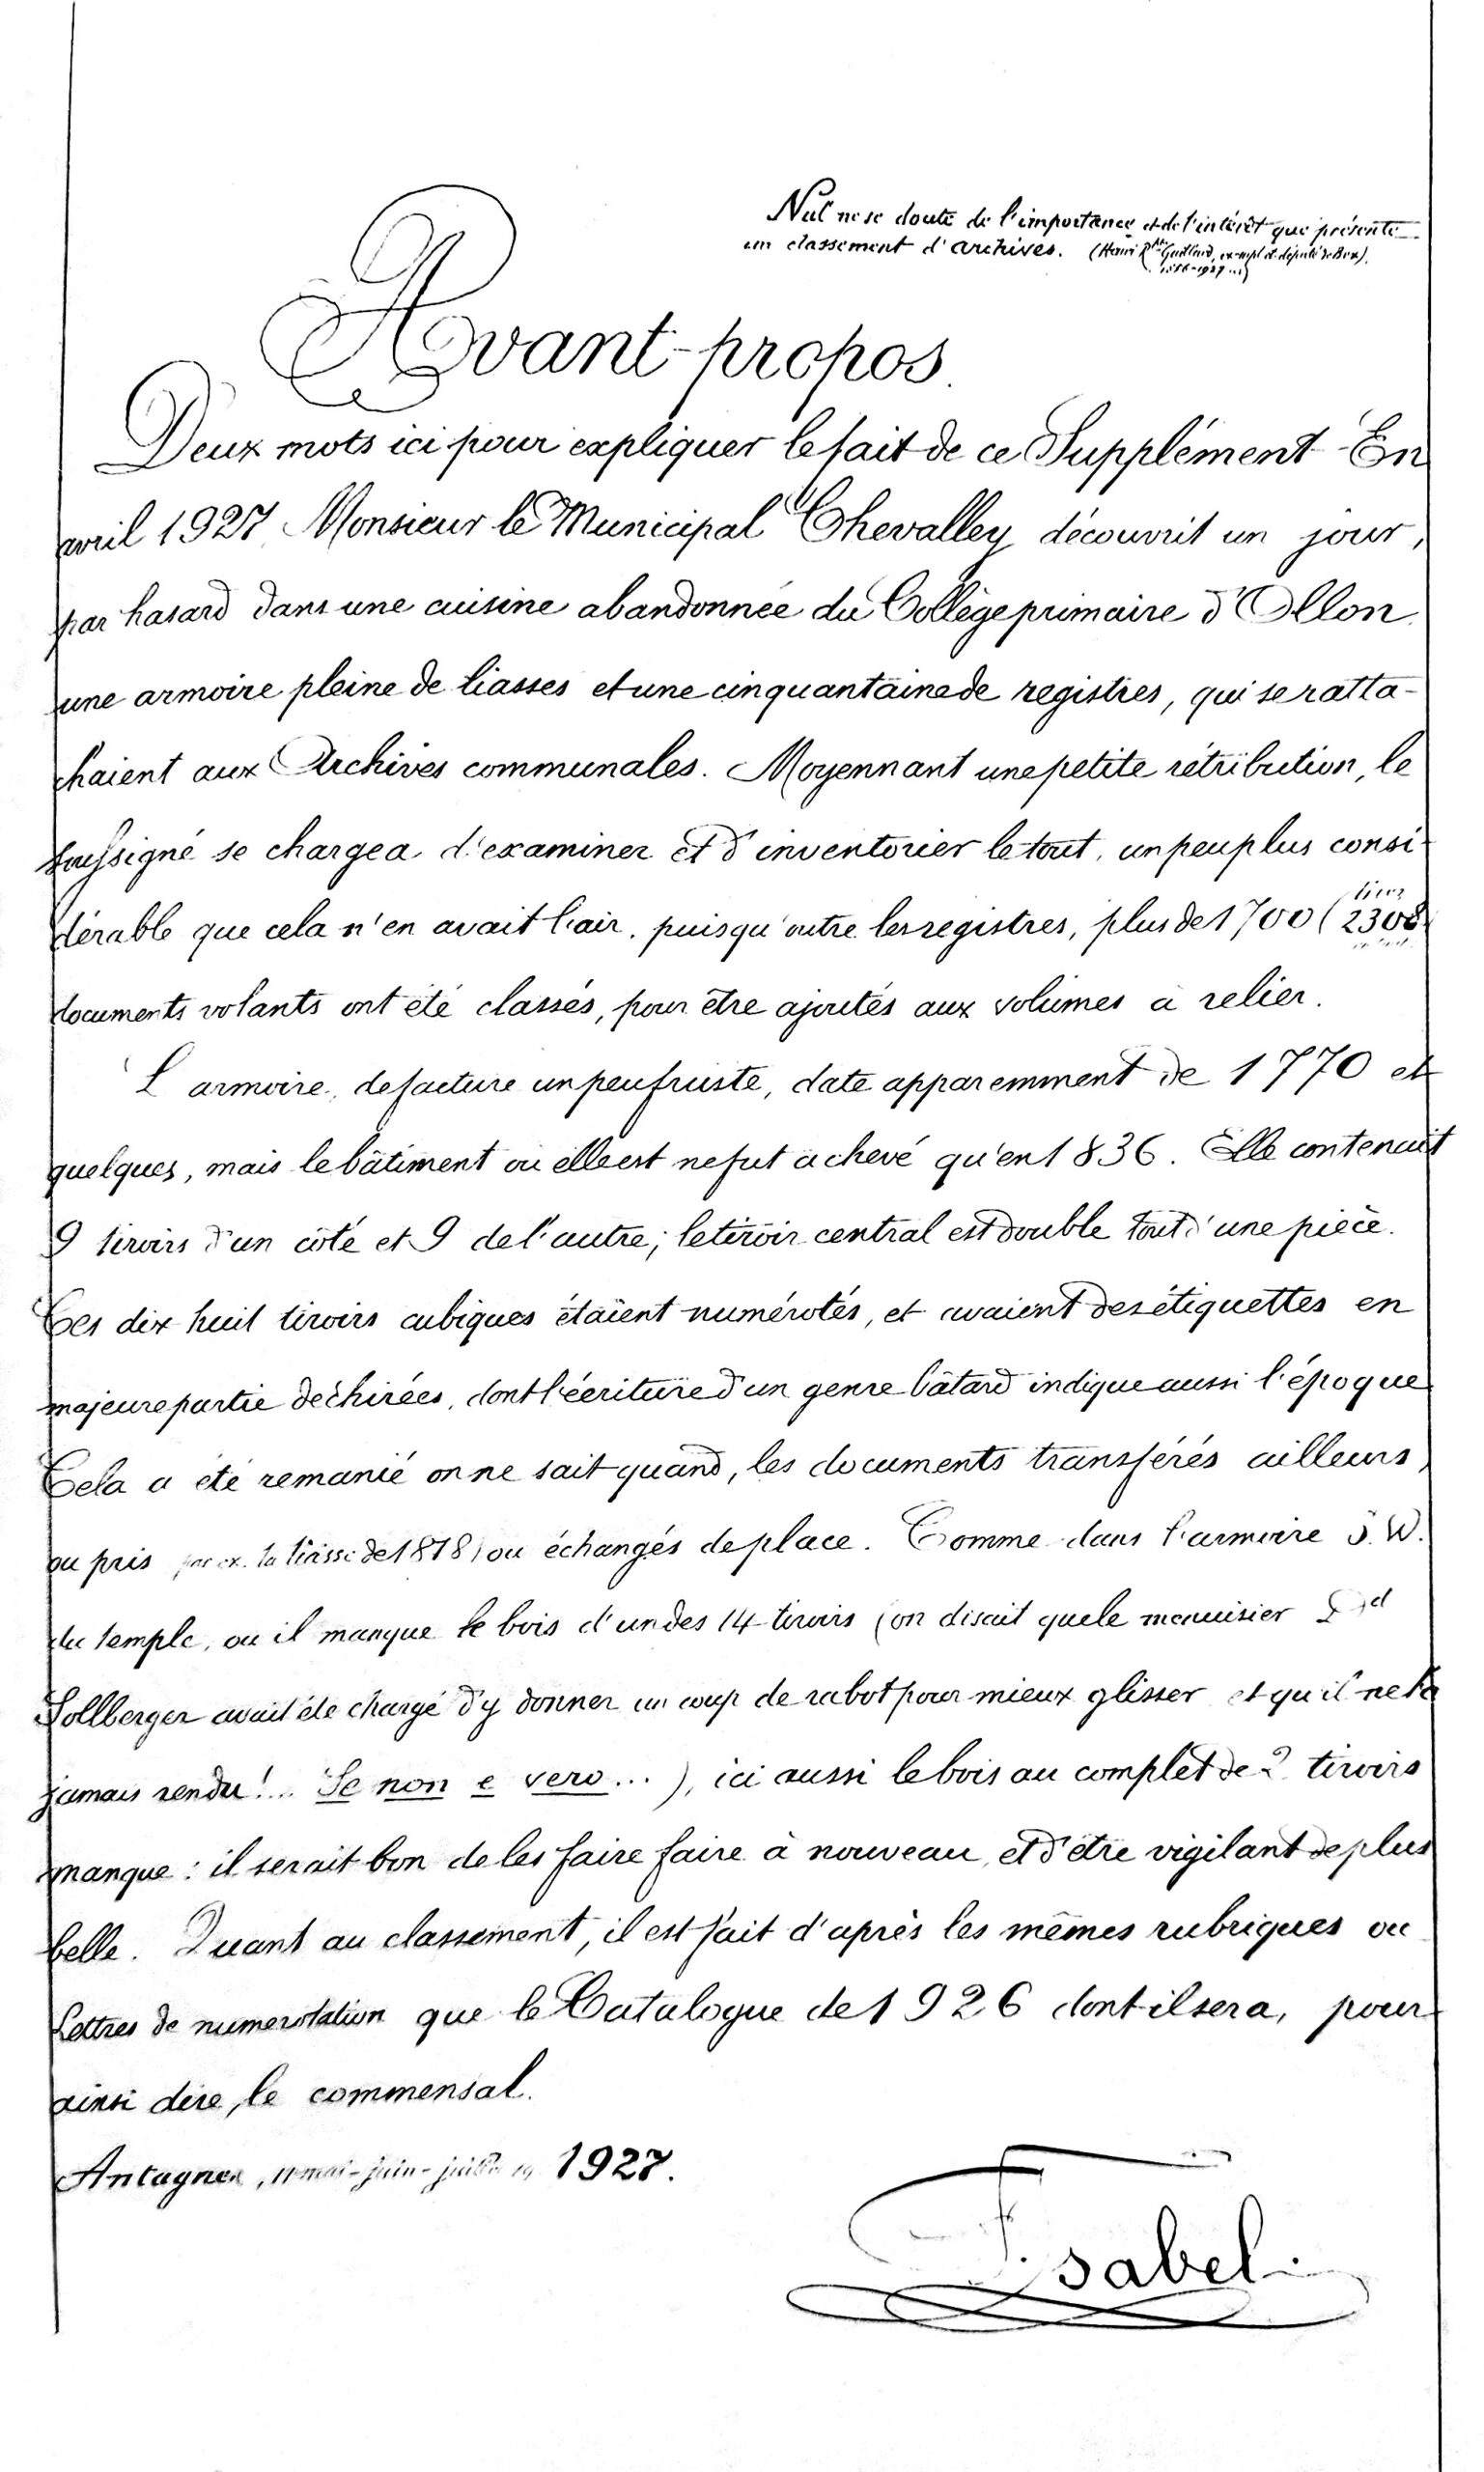 Nul ne se doute de l'importance et de l'intérêt que présente
un classement d'archives. (Henri
Avant-propos.
Deux mots ici pour expliquer le fait de ce Supplément - En
avril 1927 Monsieur le Municipal Chevalley découvrit un jour,
par hasard dans une cuisine abandonnée du Collège primaire d'Ollon
une armoire pleine de liasses et une cinquantaine de registres, qui se ratta-
chaient aux Archives communales. Moyennant une petite rétribution, le
soussigné se chargea d'examiner et d'inventorier le tout, un peu plus consi-
dérable que cela n'en avait l'air, puisqu'outre les registres, plus de 1700 (2308
documents volants ont été classés, pour être ajoutés aux volumes à relier.
L'armoire, de facture un peu fruste, date apparemment de 1770 et
quelques, mais le bâtiment où elle est ne fut achevé qu'en 1836. Elle contenait
9 tiroirs d'un côté et 9 de l'autre; le tiroir central est double tout d'une pièce.
Ces dix huit tiroirs cubiques étaient numérotés, et avaient des étiquettes en
majeure partie déchirées, dont l'écriture d'un genre bâtard indique aussi l'époque
Cela a été remanié on ne sait quand, les documents transférés ailleurs,
ou pris par ex. la liasse de 1818) ou échangés de place. Comme dans l'armoire S.W.
du temple, où il manque le bois d'un des 14 tiroirs (on disait que le menuisier
Sollberger avait été chargé d'y donner un coup de rabot pour mieux glisser et qu'il ne l'a
jamais rendu!... Se non e vero...), ici aussi le bois au complet de 2 tiroirs
manque: il serait bon de les faire faire à nouveau, et d'être vigilant de plus
belle. Quant au classement, il est fait d'après les mêmes rubriques ou
lettres de numérotation que le Catalogue de 1926 dont il sera, pour
ainsi dire, le commensal.
Antagnes, 11 mai - juin - juillet 1927.
F. Isabel.